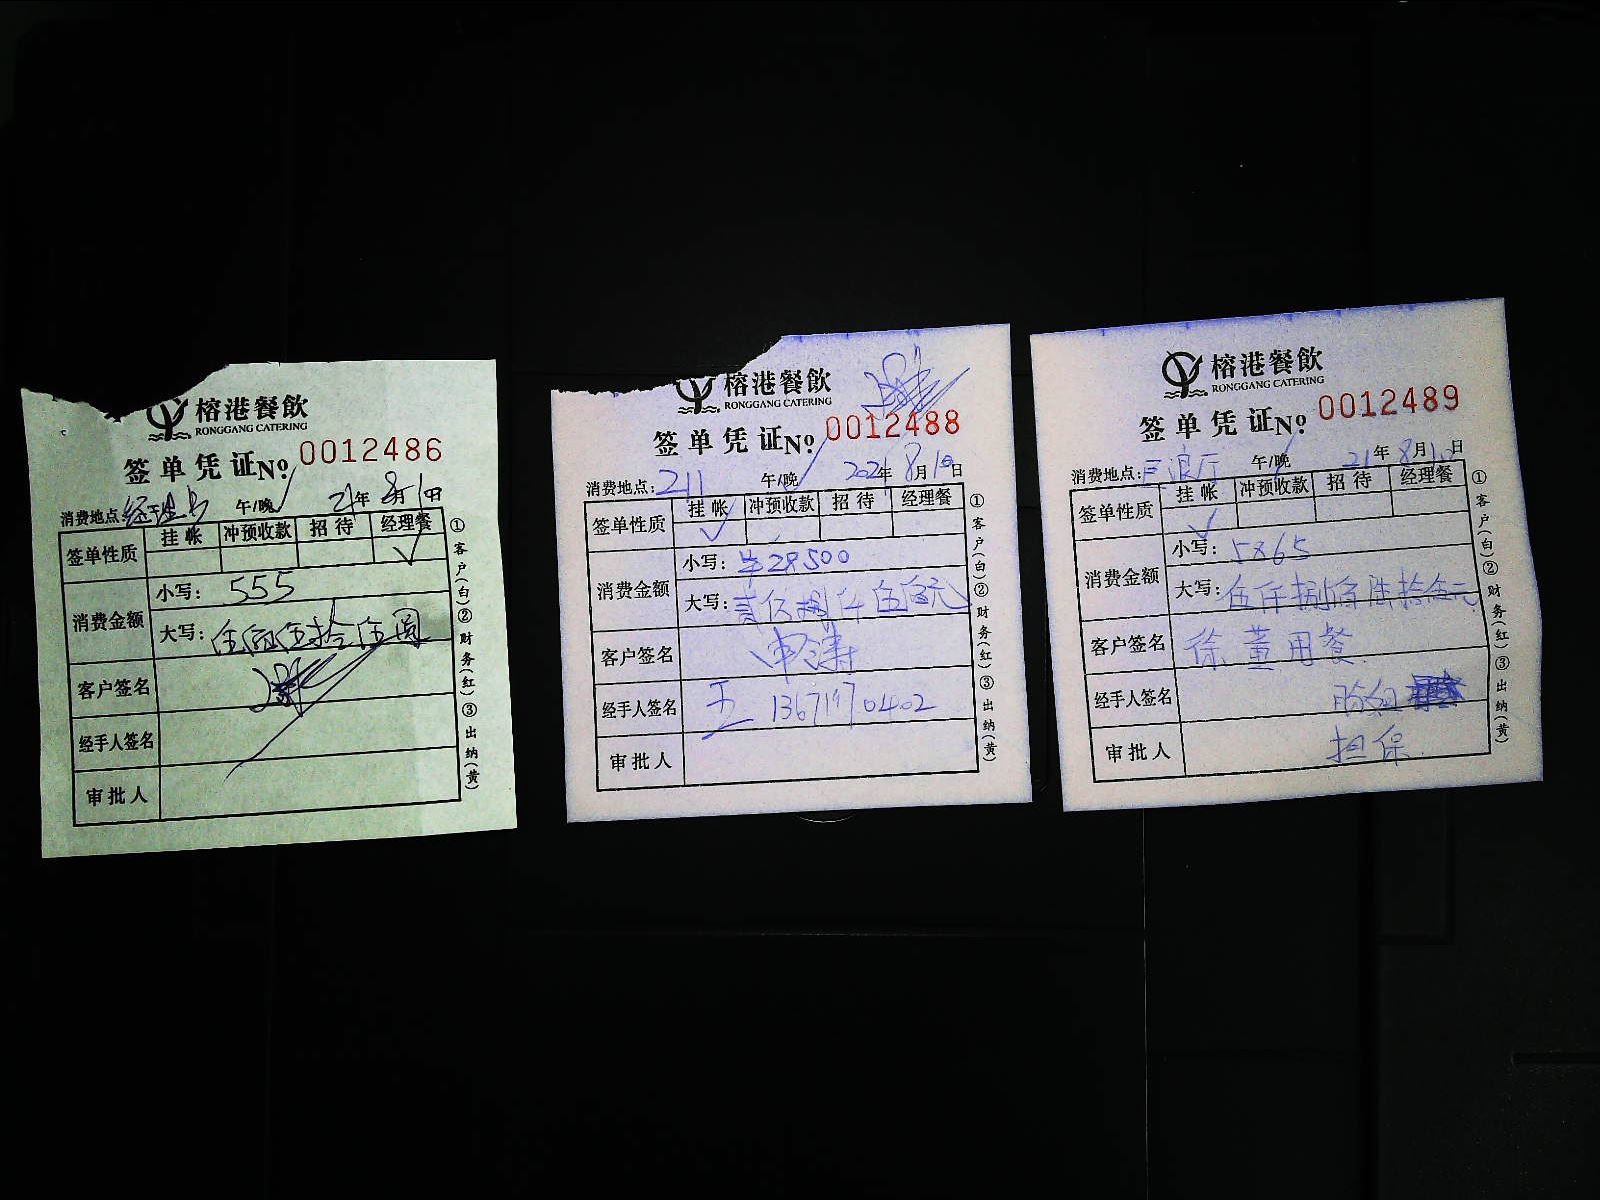 榕港餐飲
RONGGANG CATERING
签单凭证No. 0012486
消费地点: 午/晚 21年8月 日
签单性质 挂帐 冲预收款 招待 经理餐
✓
消费金额 小写: 555
大写: 伍佰伍拾伍圆
客户签名
经手人签名
审批人
①客户(白)②财务(红)③出纳(黄)
榕港餐飲
RONGGANG CATERING
签单凭证No. 0012488
消费地点: 211 午/晚 2021年8月10日
签单性质 挂帐 冲预收款 招待 经理餐
✓
消费金额 小写: ¥28500
大写: 捌仟伍佰元
客户签名
经手人签名 王
审批人
①客户(白)②财务(红)③出纳(黄)
榕港餐飲
RONGGANG CATERING
签单凭证No. 0012489
消费地点: 午/晚 21年8月10日
签单性质 挂帐 冲预收款 招待 经理餐
✓
消费金额 小写: 5865
大写: 伍仟捌佰陆拾伍元
客户签名 徐董用餐
经手人签名
审批人 担保
①客户(白)②财务(红)③出纳(黄)